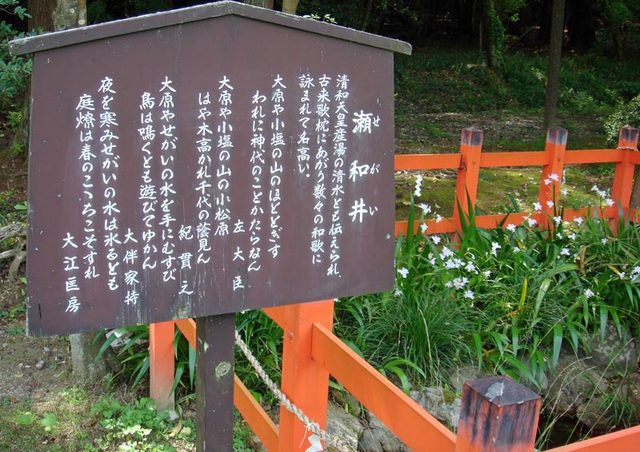 瀬和井
せがい
清和天皇産湯の清水とも伝えられ、
古来歌枕にあがり数々の和歌に
詠まれて名高い。
大原や小塩の山のほととぎす
われに神代のことかたらなん
左大臣
大原や小塩の山の小松原
はや木高かれ千代の蔭見ん
紀貫之
大原やせがいの水を手にむすび
鳥は鳴くとも遊びてゆかん
大伴家持
夜を寒みせがいの水は氷るとも
庭燎は春のこゝろこそすれ
大江匡房